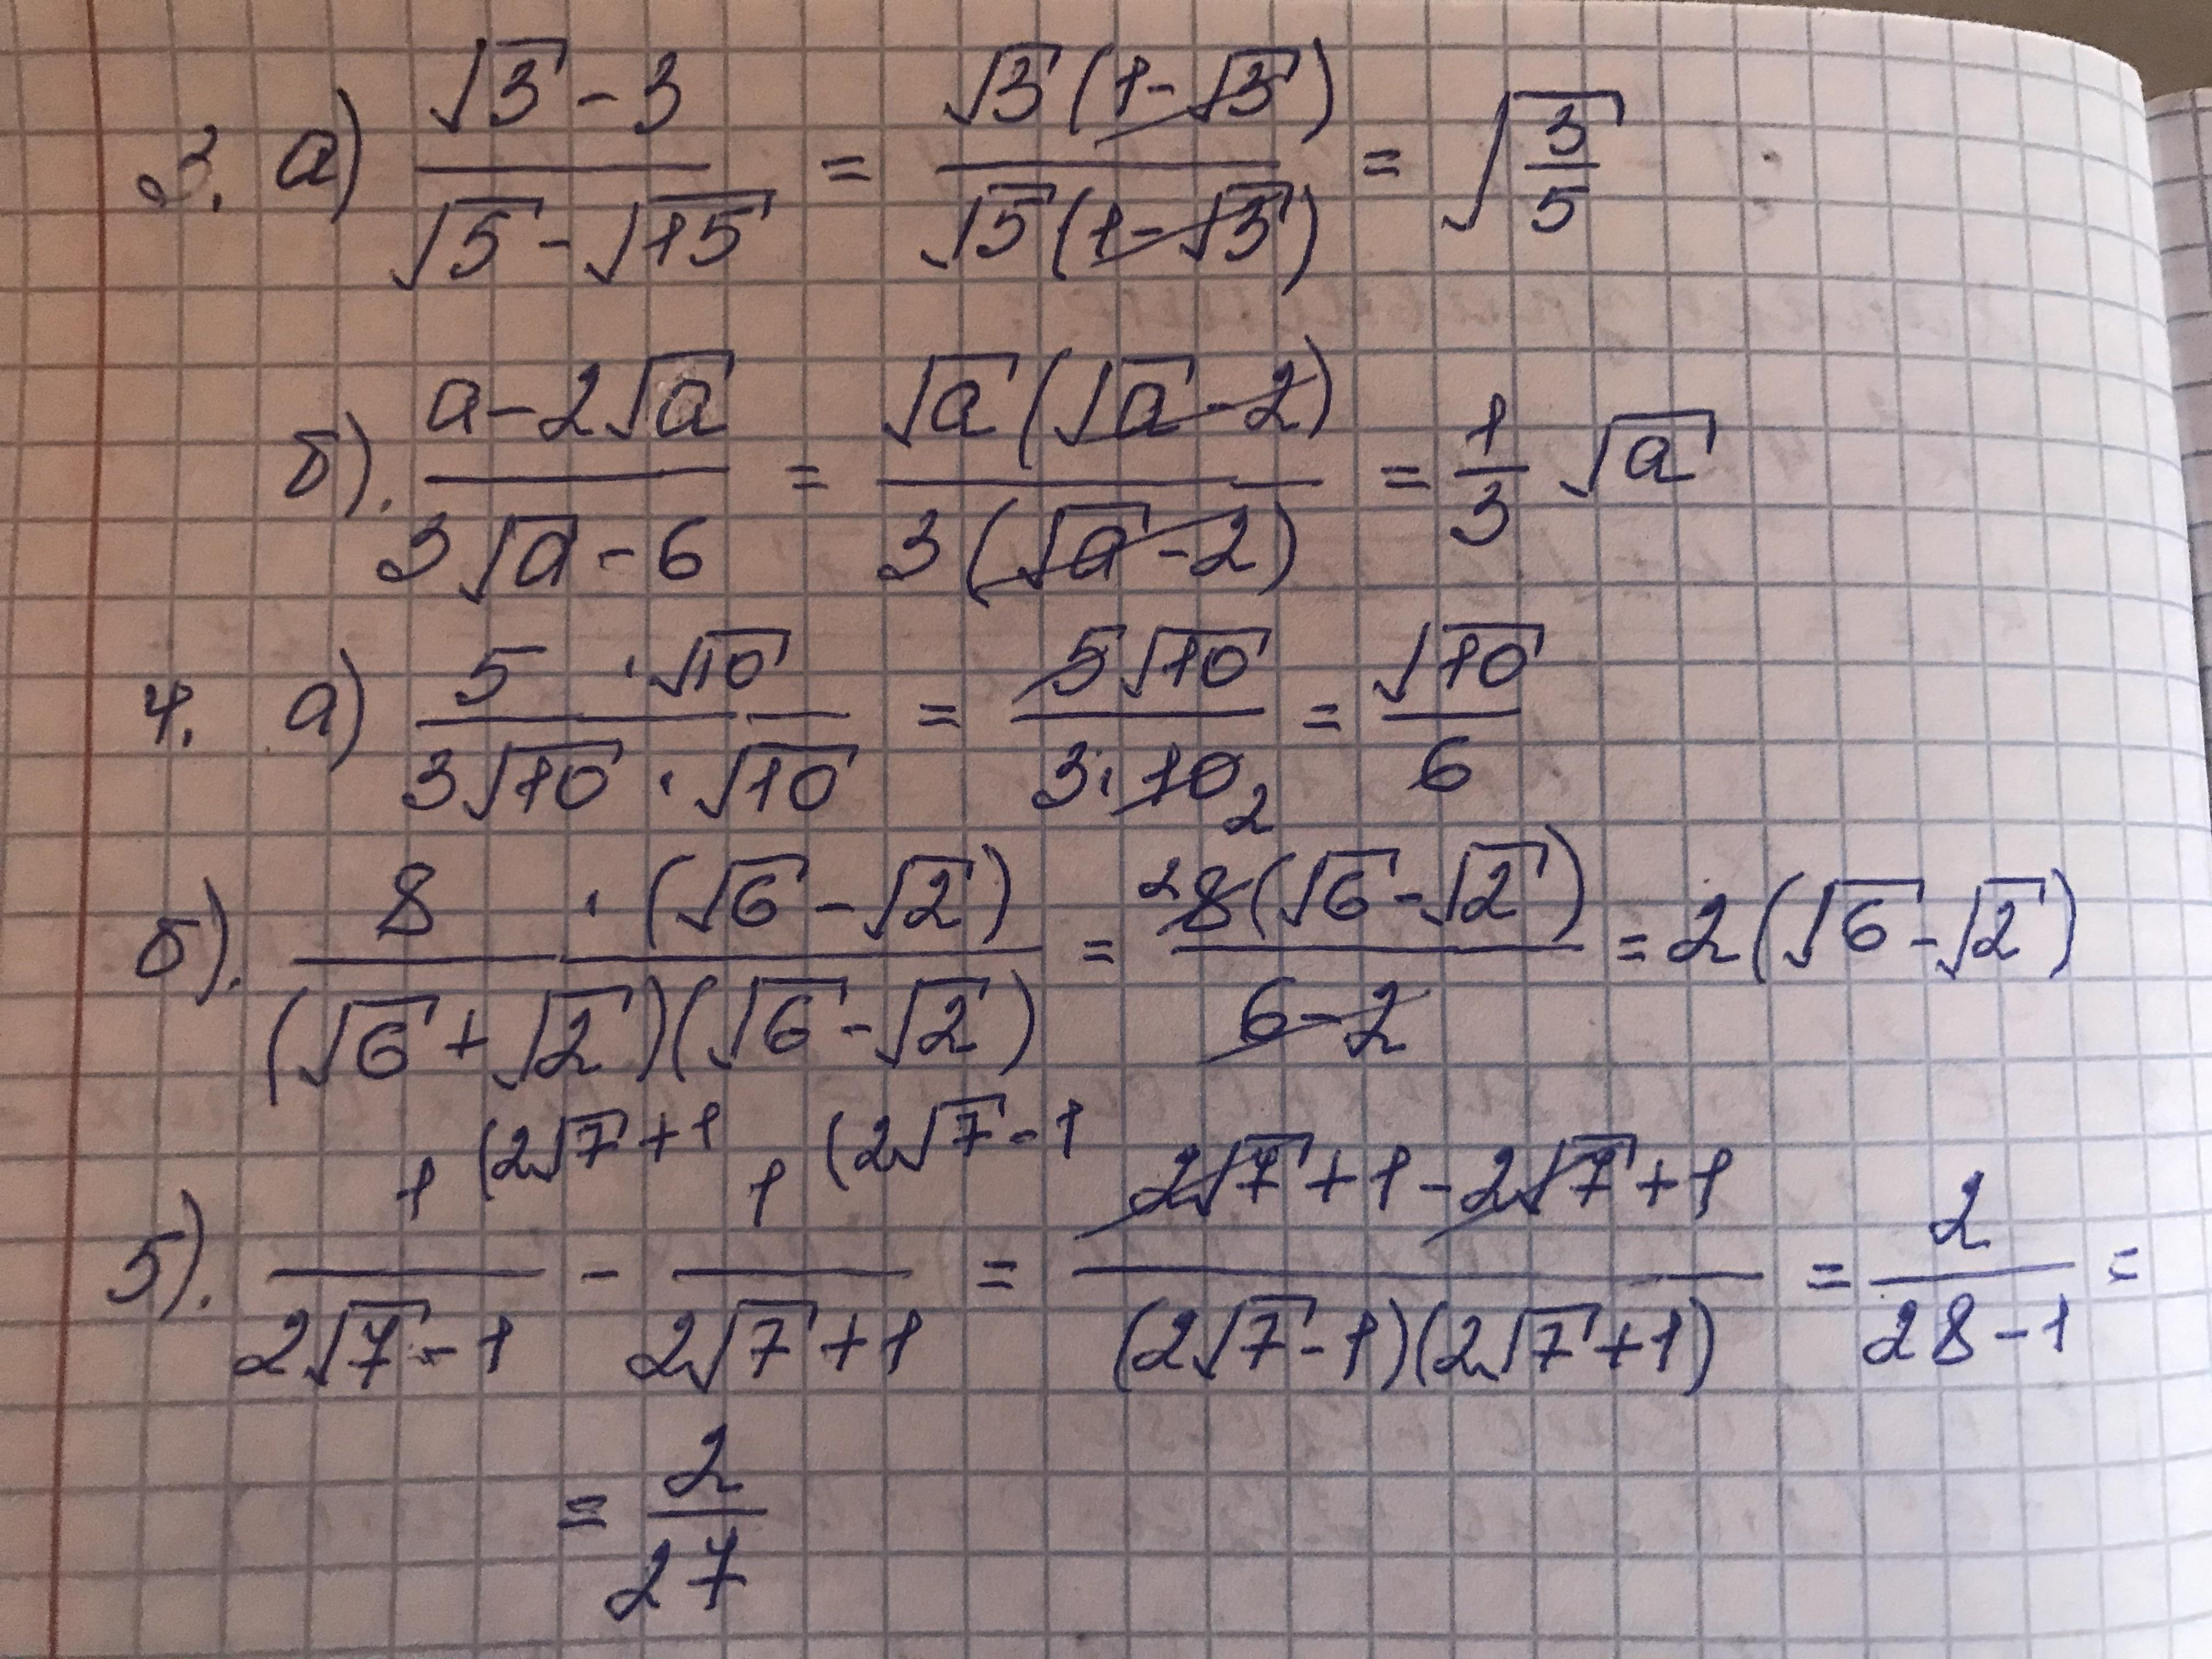 3. а) (√3 - 3)/(√5 - √15) = (√3(1-√3))/(√5(1-√3)) = √(3/5)
б). (a - 2√a)/(3√a - 6) = (√a(√a - 2))/(3(√a - 2)) = 1/3 √a
4. а) (5 · √10)/(3√10 · √10) = (5√10)/(3·10 2) = √10/6
б). (8 · (√6 - √2))/((√6 + √2)(√6 - √2)) = (2 8(√6 - √2))/(6 - 2) = 2(√6 - √2)
5). 1 (2√7 + 1/(2√7 - 1) - 1 (2√7 - 1/(2√7 + 1) = (2√7 + 1 - 2√7 + 1)/((2√7 - 1)(2√7 + 1)) = 2/(28 - 1) =
= 2/27